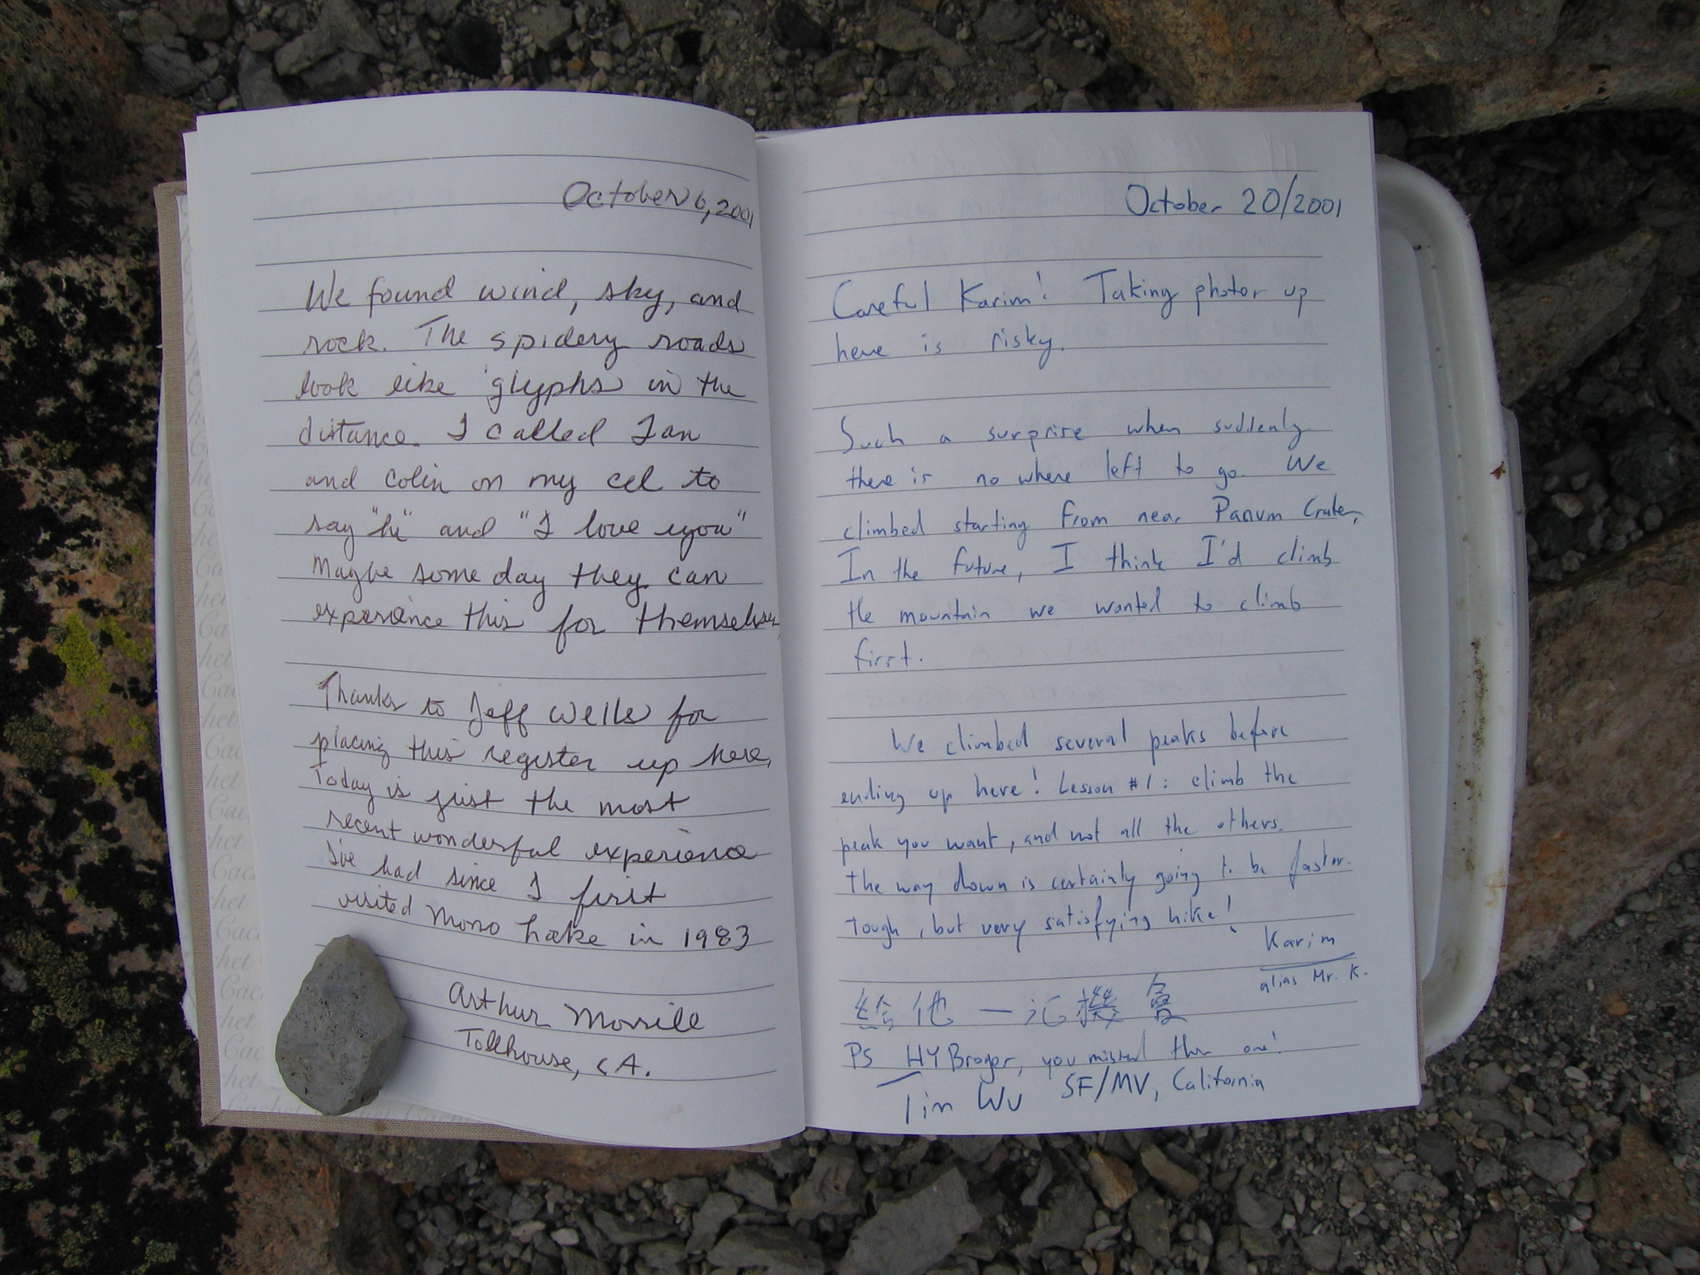 October 6, 2001
We found wind, sky, and
rock. The spidery roads
look like glyphs in the
distance. I called Ian
and Colin on my cel to
say "hi" and "I love you"
Maybe some day they can
experience this for themselves.
Thanks to Jeff Wells for
placing this register up here.
Today is just the most
recent wonderful experience
I've had since I first
visited Mono Lake in 1983
Arthur Morrill
Tollhouse, CA.
October 20/2001
Careful Karim! Taking photos up
here is risky.
Such a surprise when suddenly
there is no where left to go. We
climbed starting from near Panum Crater.
In the future, I think I'd climb
the mountain we wanted to climb
first.
We climbed several peaks before
ending up here! Lesson #1: climb the
peak you want, and not all the others.
The way down is certainly going to be faster.
Tough, but very satisfying hike!
Karim
alias Mr. K.
給他一
PS HY Broger, you missed this one!
Tim Wu SF/MV, California
Cachet